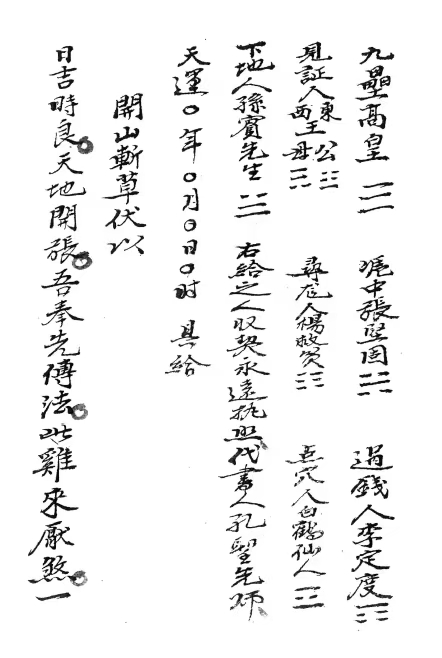 九壘高皇 中張堅固 過錢人李定度
見証人東西王公母 尋龙人楊救貧 点穴人白鶴仙人
下地人孫賓先生 右給之人収契永遠执照代書人孔聖先师
天運〇年〇月〇日〇时 具給
開山斬草伏以
日吉時良。天地開張。吾奉先傳法。此雞來厭煞。一